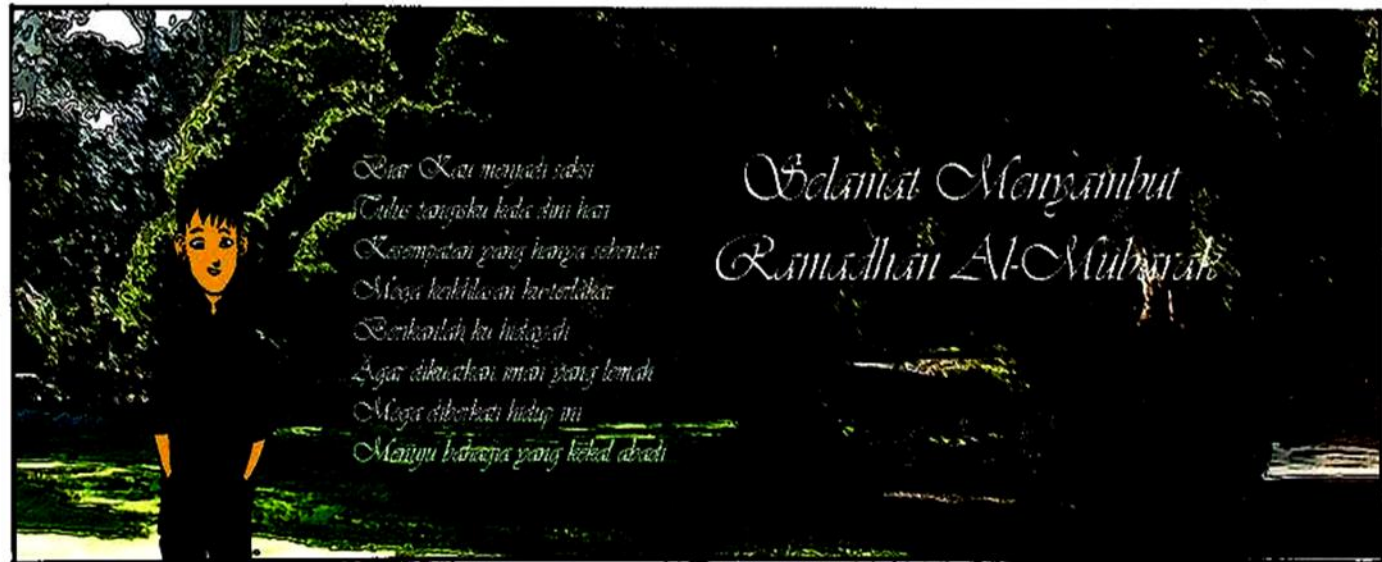 Biar Kau menjadi saksi
Tulus tangisku kala dini hari
Kesempatan yang hanya sebentar
Moga keikhlasan ku terlakar
Berikanlah ku hidayah
Agar dikuatkan iman yang lemah
Moga diberkati hidup ini
Menuju bahagia yang kekal abadi
Selamat Menyambut
Ramadhan Al-Mubarak